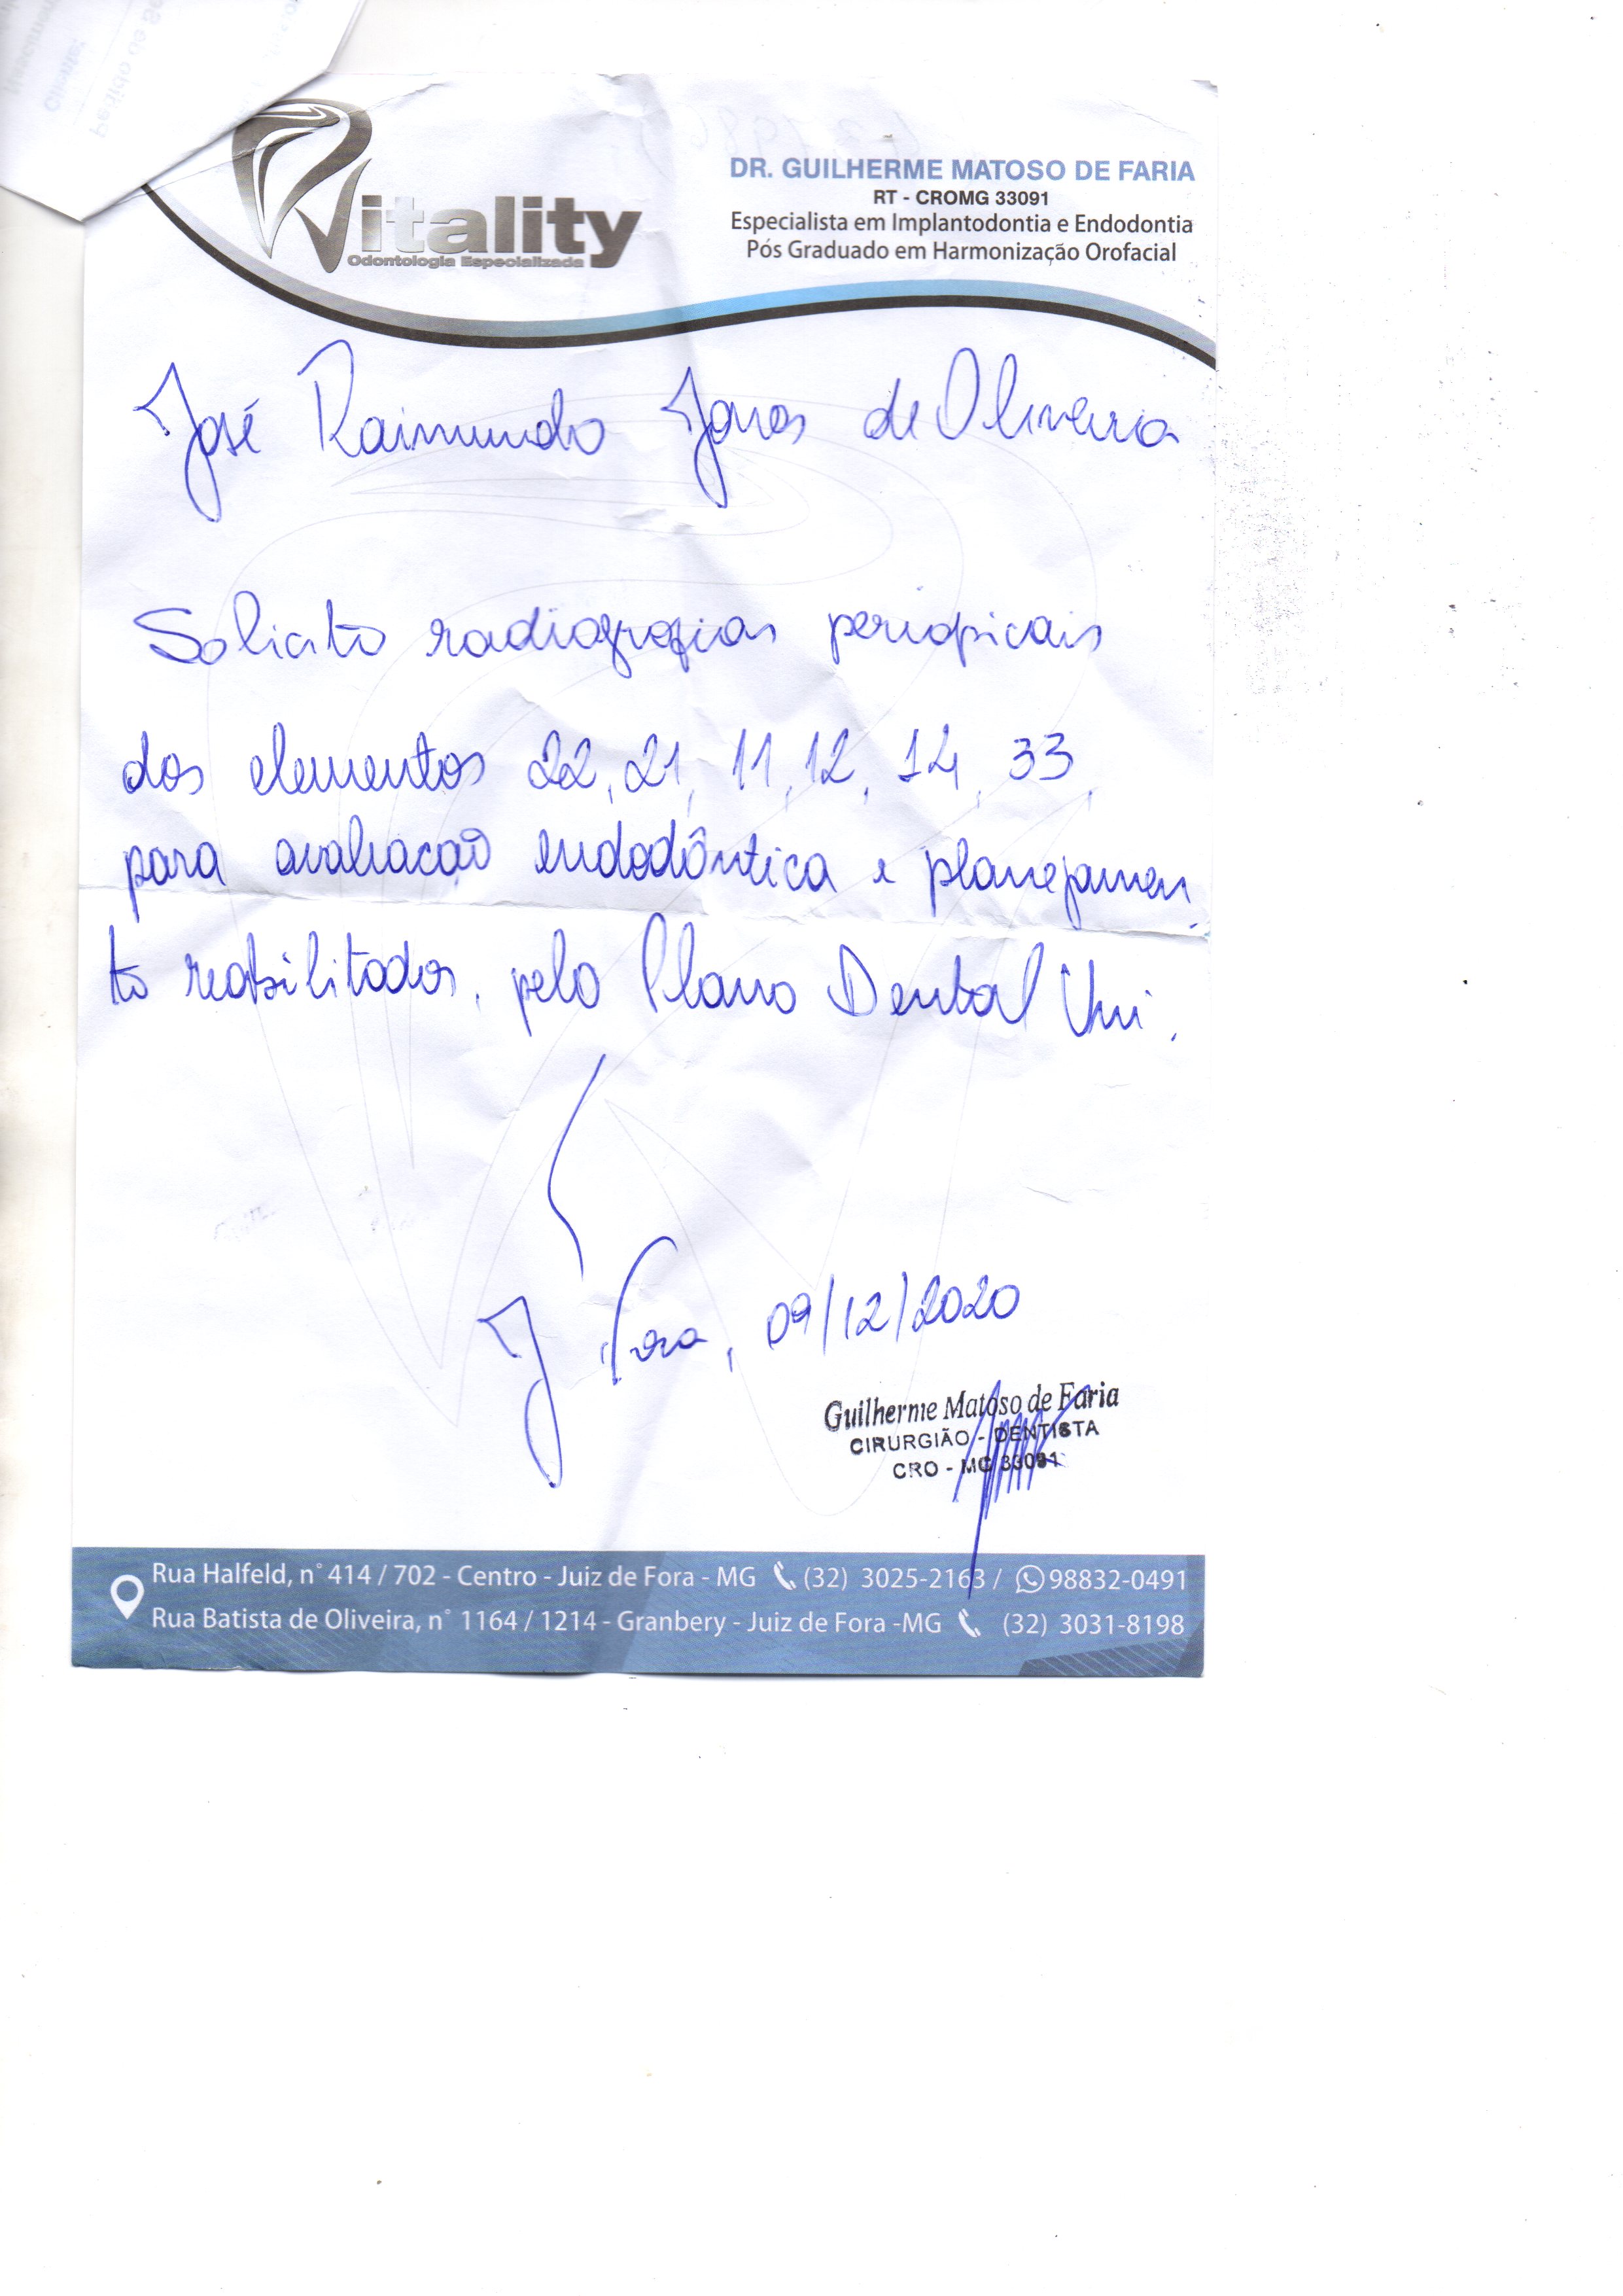 Vitality
Odontologia Especializada
DR. GUILHERME MATOSO DE FARIA
RT - CROMG 33091
Especialista em Implantodontia e Endodontia
Pós Graduado em Harmonização Orofacial
José Raimundo de Oliveira
Solicito radiografias periapicais
dos elementos 22, 21, 11, 12, 14, 33,
para avaliação endodôntica e planejamen
to pelo Plano Dental Uni.
J. Fora, 09/12/2020
Guilherme Matoso de Faria
CIRURGIÃO - DENTISTA
CRO - MG 33091
Rua Halfeld, n° 414 / 702 - Centro - Juiz de Fora - MG (32) 3025-2163 / 98832-0491
Rua Batista de Oliveira, n° 1164 / 1214 - Granbery - Juiz de Fora -MG (32) 3031-8198